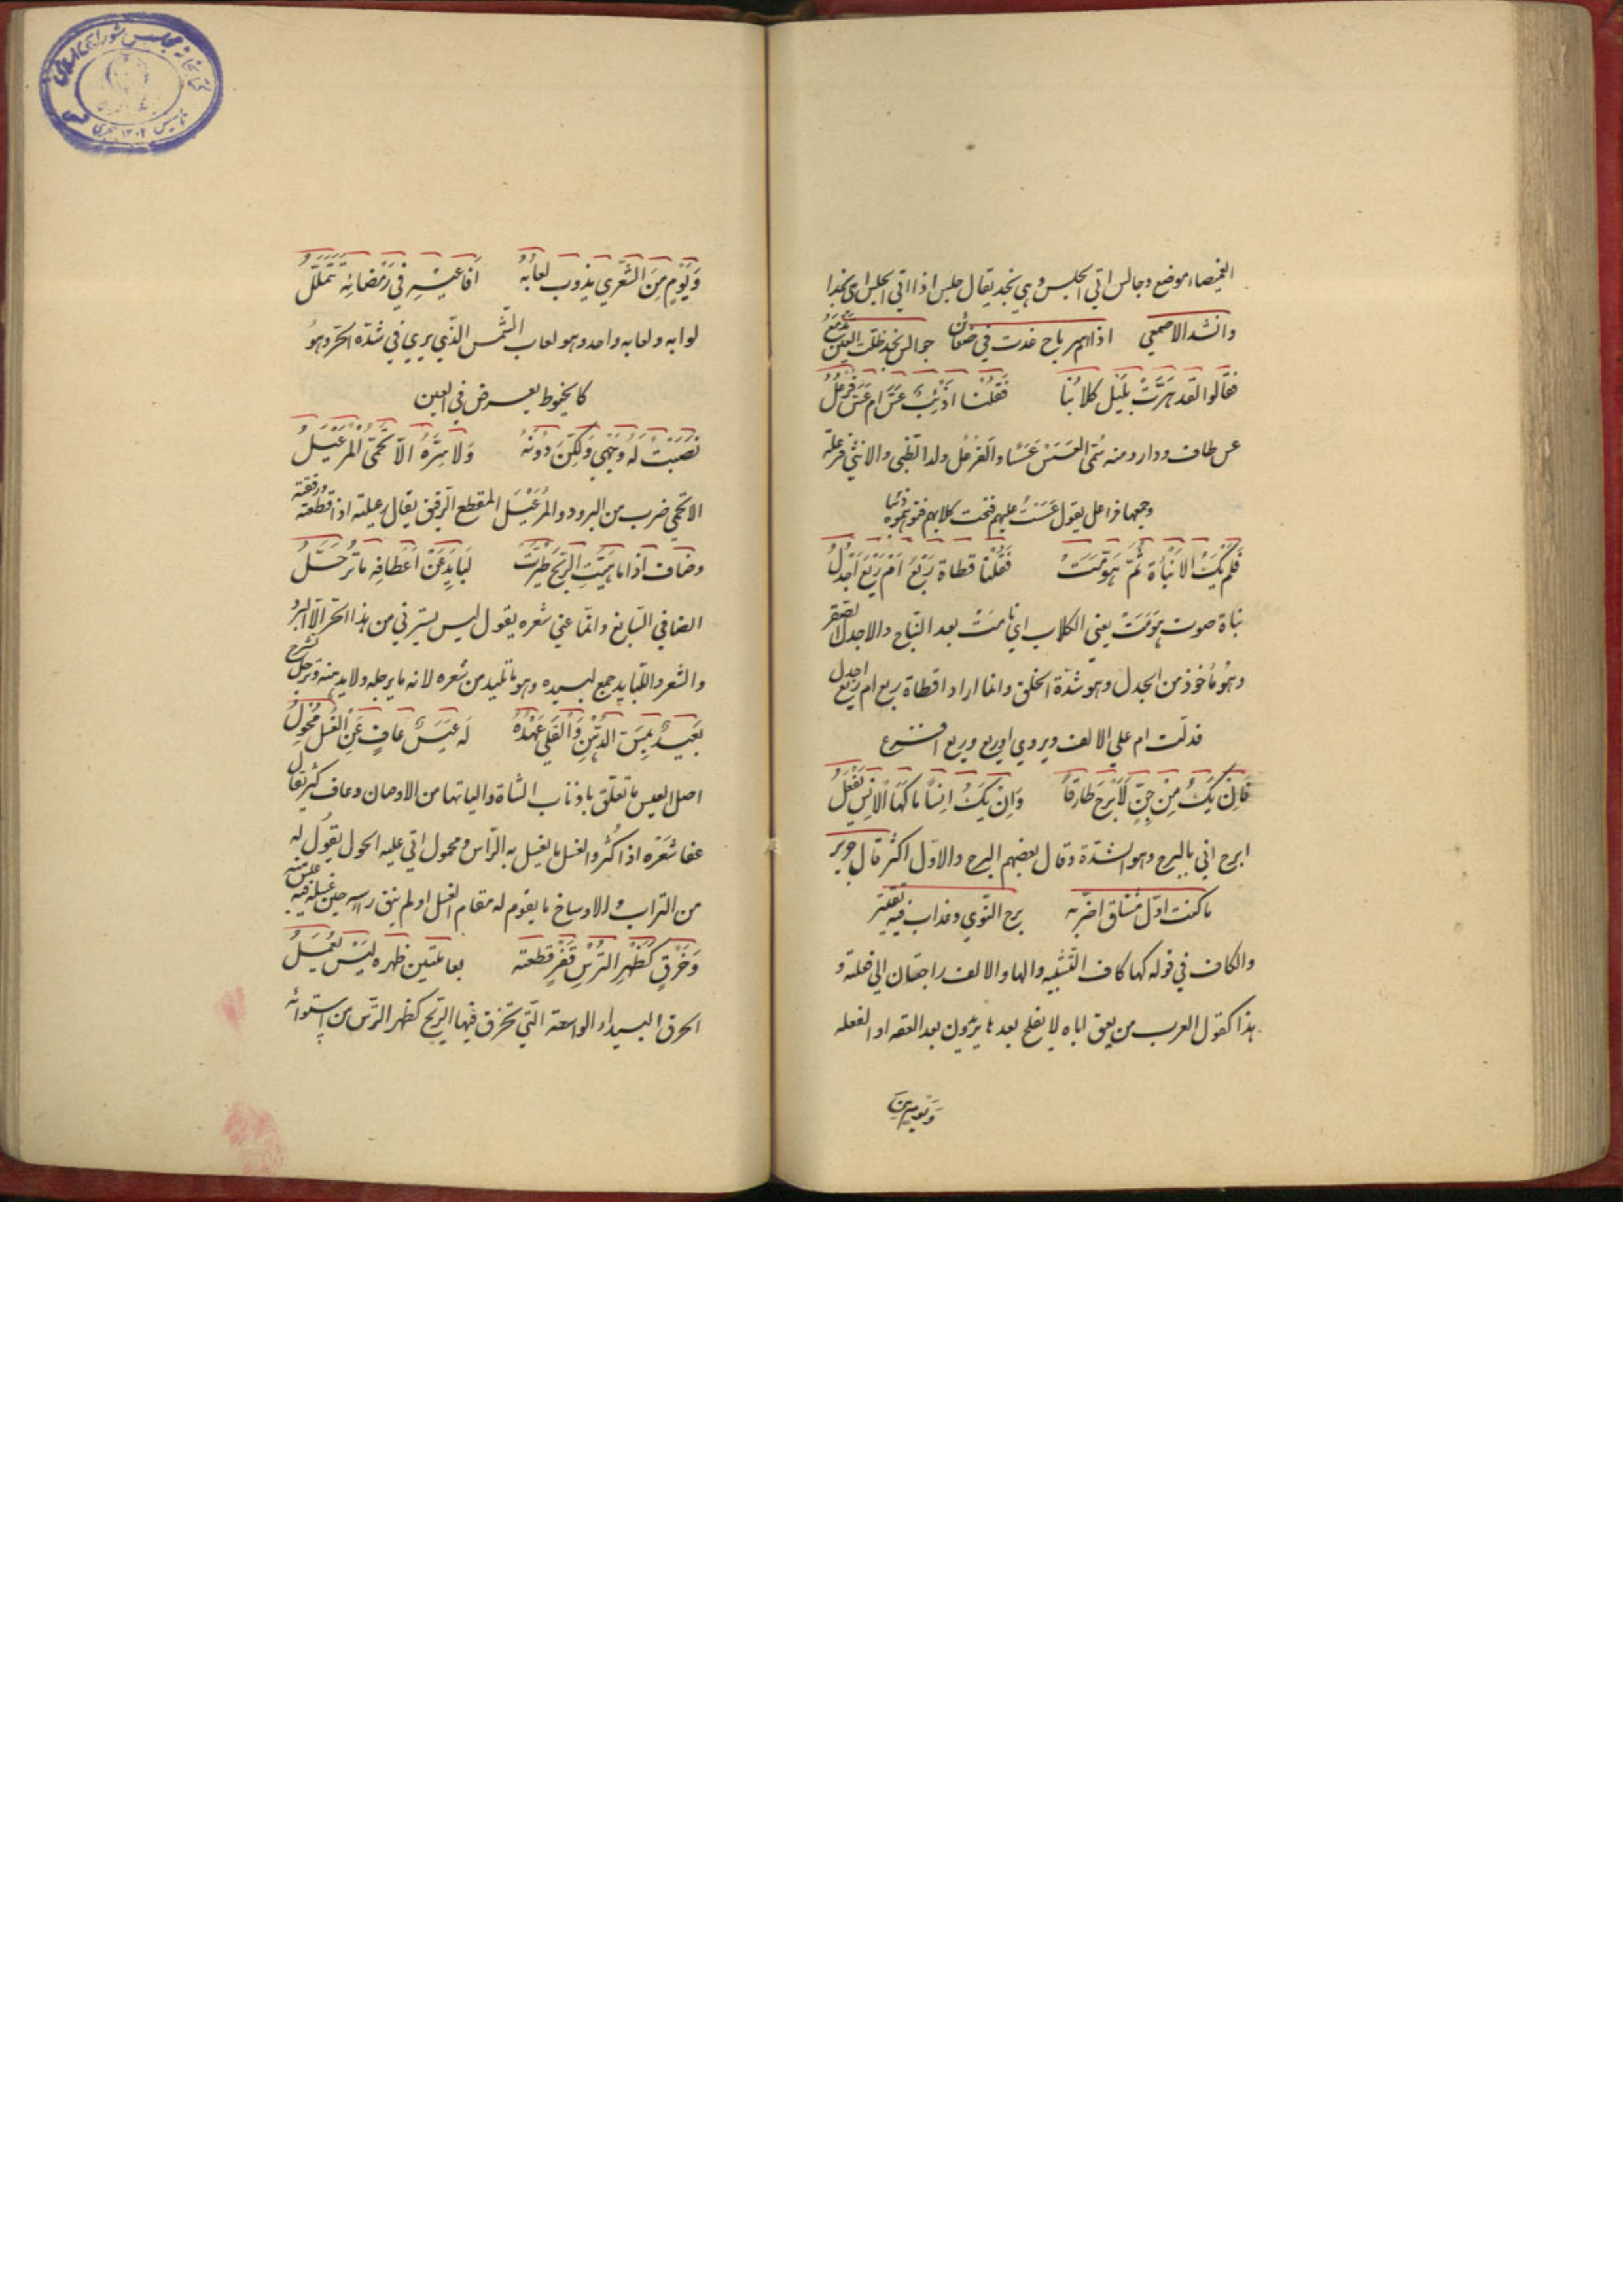 الغميصاء موضع وجالس اتي الجلس وهي نجد يقال جلس اذا اتي الجلس اي نجدا
وانشد الاصمعي اذا ام سرياح غدت في ضعائن جوالس نجد ظلت العين تدمع
فقالوا لقد هَرَّتْ بِلَيْلٍ كلابُنا فَقُلْنا اَذِئْبٌ عَسَّ ام عَسَّ فُرْعُلُ
عس طاف ودار ومنه سُمّى العَسَسْ عَسَسًا والفرعُل ولد الظبى والانثي فرعلة
وجمعها فراعل يقول عَسَسْتُ عليهم فنبحت كلابهم فتوهموه ذئبا
فَلَمْ يَكُ الا نَبْأَة ثُمَّ هَوَّمَتْ فَقُلْنا قطاة رِيْعَ اَمْ رِيْعَ اَجْدَلُ
نباة صوت هوّمَتْ يعني الكلاب اي نامَتْ بعد النباح والاجدل الصقر
وهُو مأخوذ من الجدل وهو شدّة الخلق وانما اراد اقطاة ريع ام ريع اجدل
فدلّت ام علي الالف ويروي اوريع وريع افزع
فَاِنْ يَكُ مِنْ جِنٍّ لَاَبْرَحُ طارِقاً وَاِنْ يَكُ اِنْساً ماكَهَا الاِنْسُ يَفْعَلُ
ابرح اتي بالبرح وهو الشدّة وقال بعضهم البرح والاوّل اكثر قال جرير
ما كنت اوّل مشتاق اضرّ به برح النّوي وعذاب فيه تفتير
والكاف في قوله كها كاف التّشبيه والها والالف راجعتان الي فعلته و
هذا كقول العرب من يعق اباه لا يفلح بعد ها يريدون بعد العقه او الفعله
وَيَوْمٍ مِنَ
وَيَوْمٍ مِنَ الشِّعْري يذوب لعابُهُ اَفاعيْهِ في رَمْضائِهِ تَتَمَلْمَلُ
لوابه ولعابه واحد وهو لعاب الشّمس الّذي يري في شدّة الحرّ وهُو
كالخيوط يعرض في العين
نَصَبْتُ لَهُ وَجْهِي وَلَاكِنَّ دُوْنَهُ وَلا سِتْرَهُ الاّ الاَتْحَمِىُّ الْمُرَعْبَلُ
الاتحمي ضرب من البرود والمُرَعْبَل المقطع الرّقيق يقال رعبلته اذا قطعته ورققته
وضاف اذا ما هَبَّتِ الرّيْحُ طَيَّرَتْ لَبَايِدَ عَنْ اَعْطافِهِ ماتُرَجَّلُ
الضافي السّابغ وانّما عني شعره يقول ليس يسترني من هذا الحّر الّا البرد
والشعر واللّبايد جمع لبيده وهو ما تلبد من شعره لانه ما يرجله ولا يدهنه وترجل تسرح
بَعِيْدٌ بِمَسِّ الدُّهْنِ وَالْفَلْيِ عَهْدُهُ لَهُ عَبَسٌ عافٍ عَنِ الْغُسْلِ مُحْوِلُ
اصل العبس ما تعلق باذناب الشاة والياتها من الاوحان وعاف كثير يقال
عفا شعَرَه اذا كُثر والغسل ما يغسل به الرّاس ومحول اتي عليه الحول يقُول له عبس
من التراب والاوساخ ما يقوم له مقام الغسل اولم ينق راسه حين غسله فيه
وَخَرْقٍ كَظَهْرِ التُّرْسِ قَفْرٍ قطعته بعاملتين ظهره لَيْسَ يُعْمَلُ
الخرق البيداء الواسعة الّتي تخرق فيها الرّيح كظهر التّرس من استوائه
كتابخانه مجلس شورای اسلامی
تاسیس ۱۳۰۲ هجری شمسی